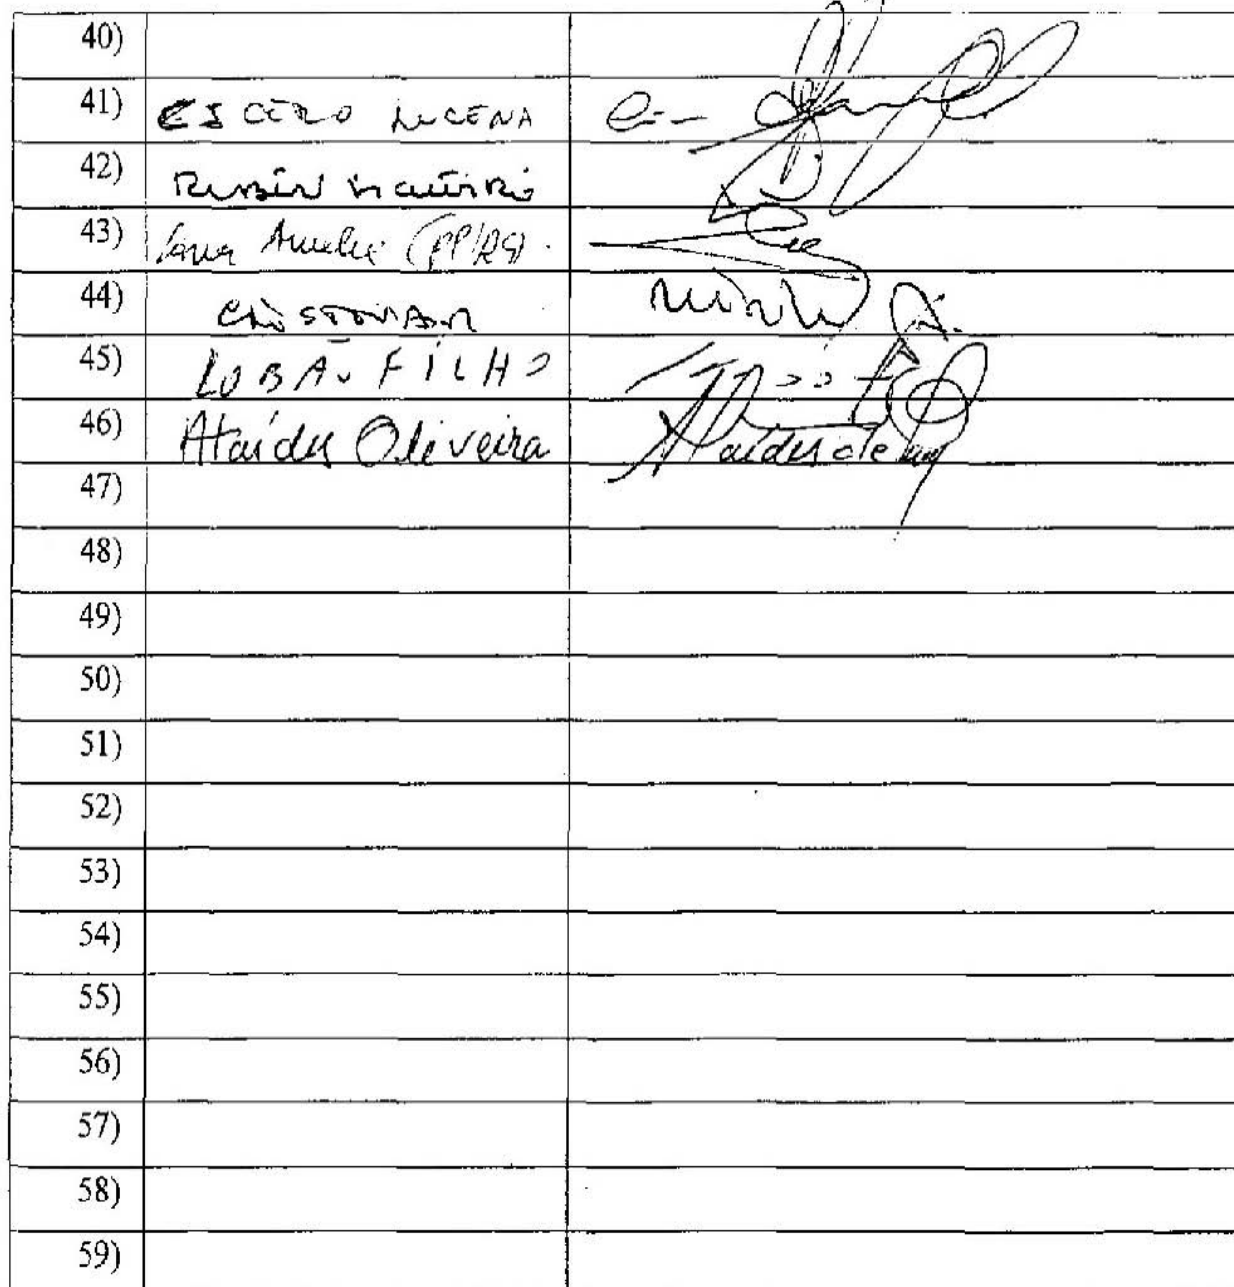 40)
41) CÍCERO LUCENA
42)
43) Ana Amelia (PP/RS)
44) CRISTOVAM
45) LOBÃO FILHO
46) Ataídes Oliveira Ataídes de
47)
48)
49)
50)
51)
52)
53)
54)
55)
56)
57)
58)
59)